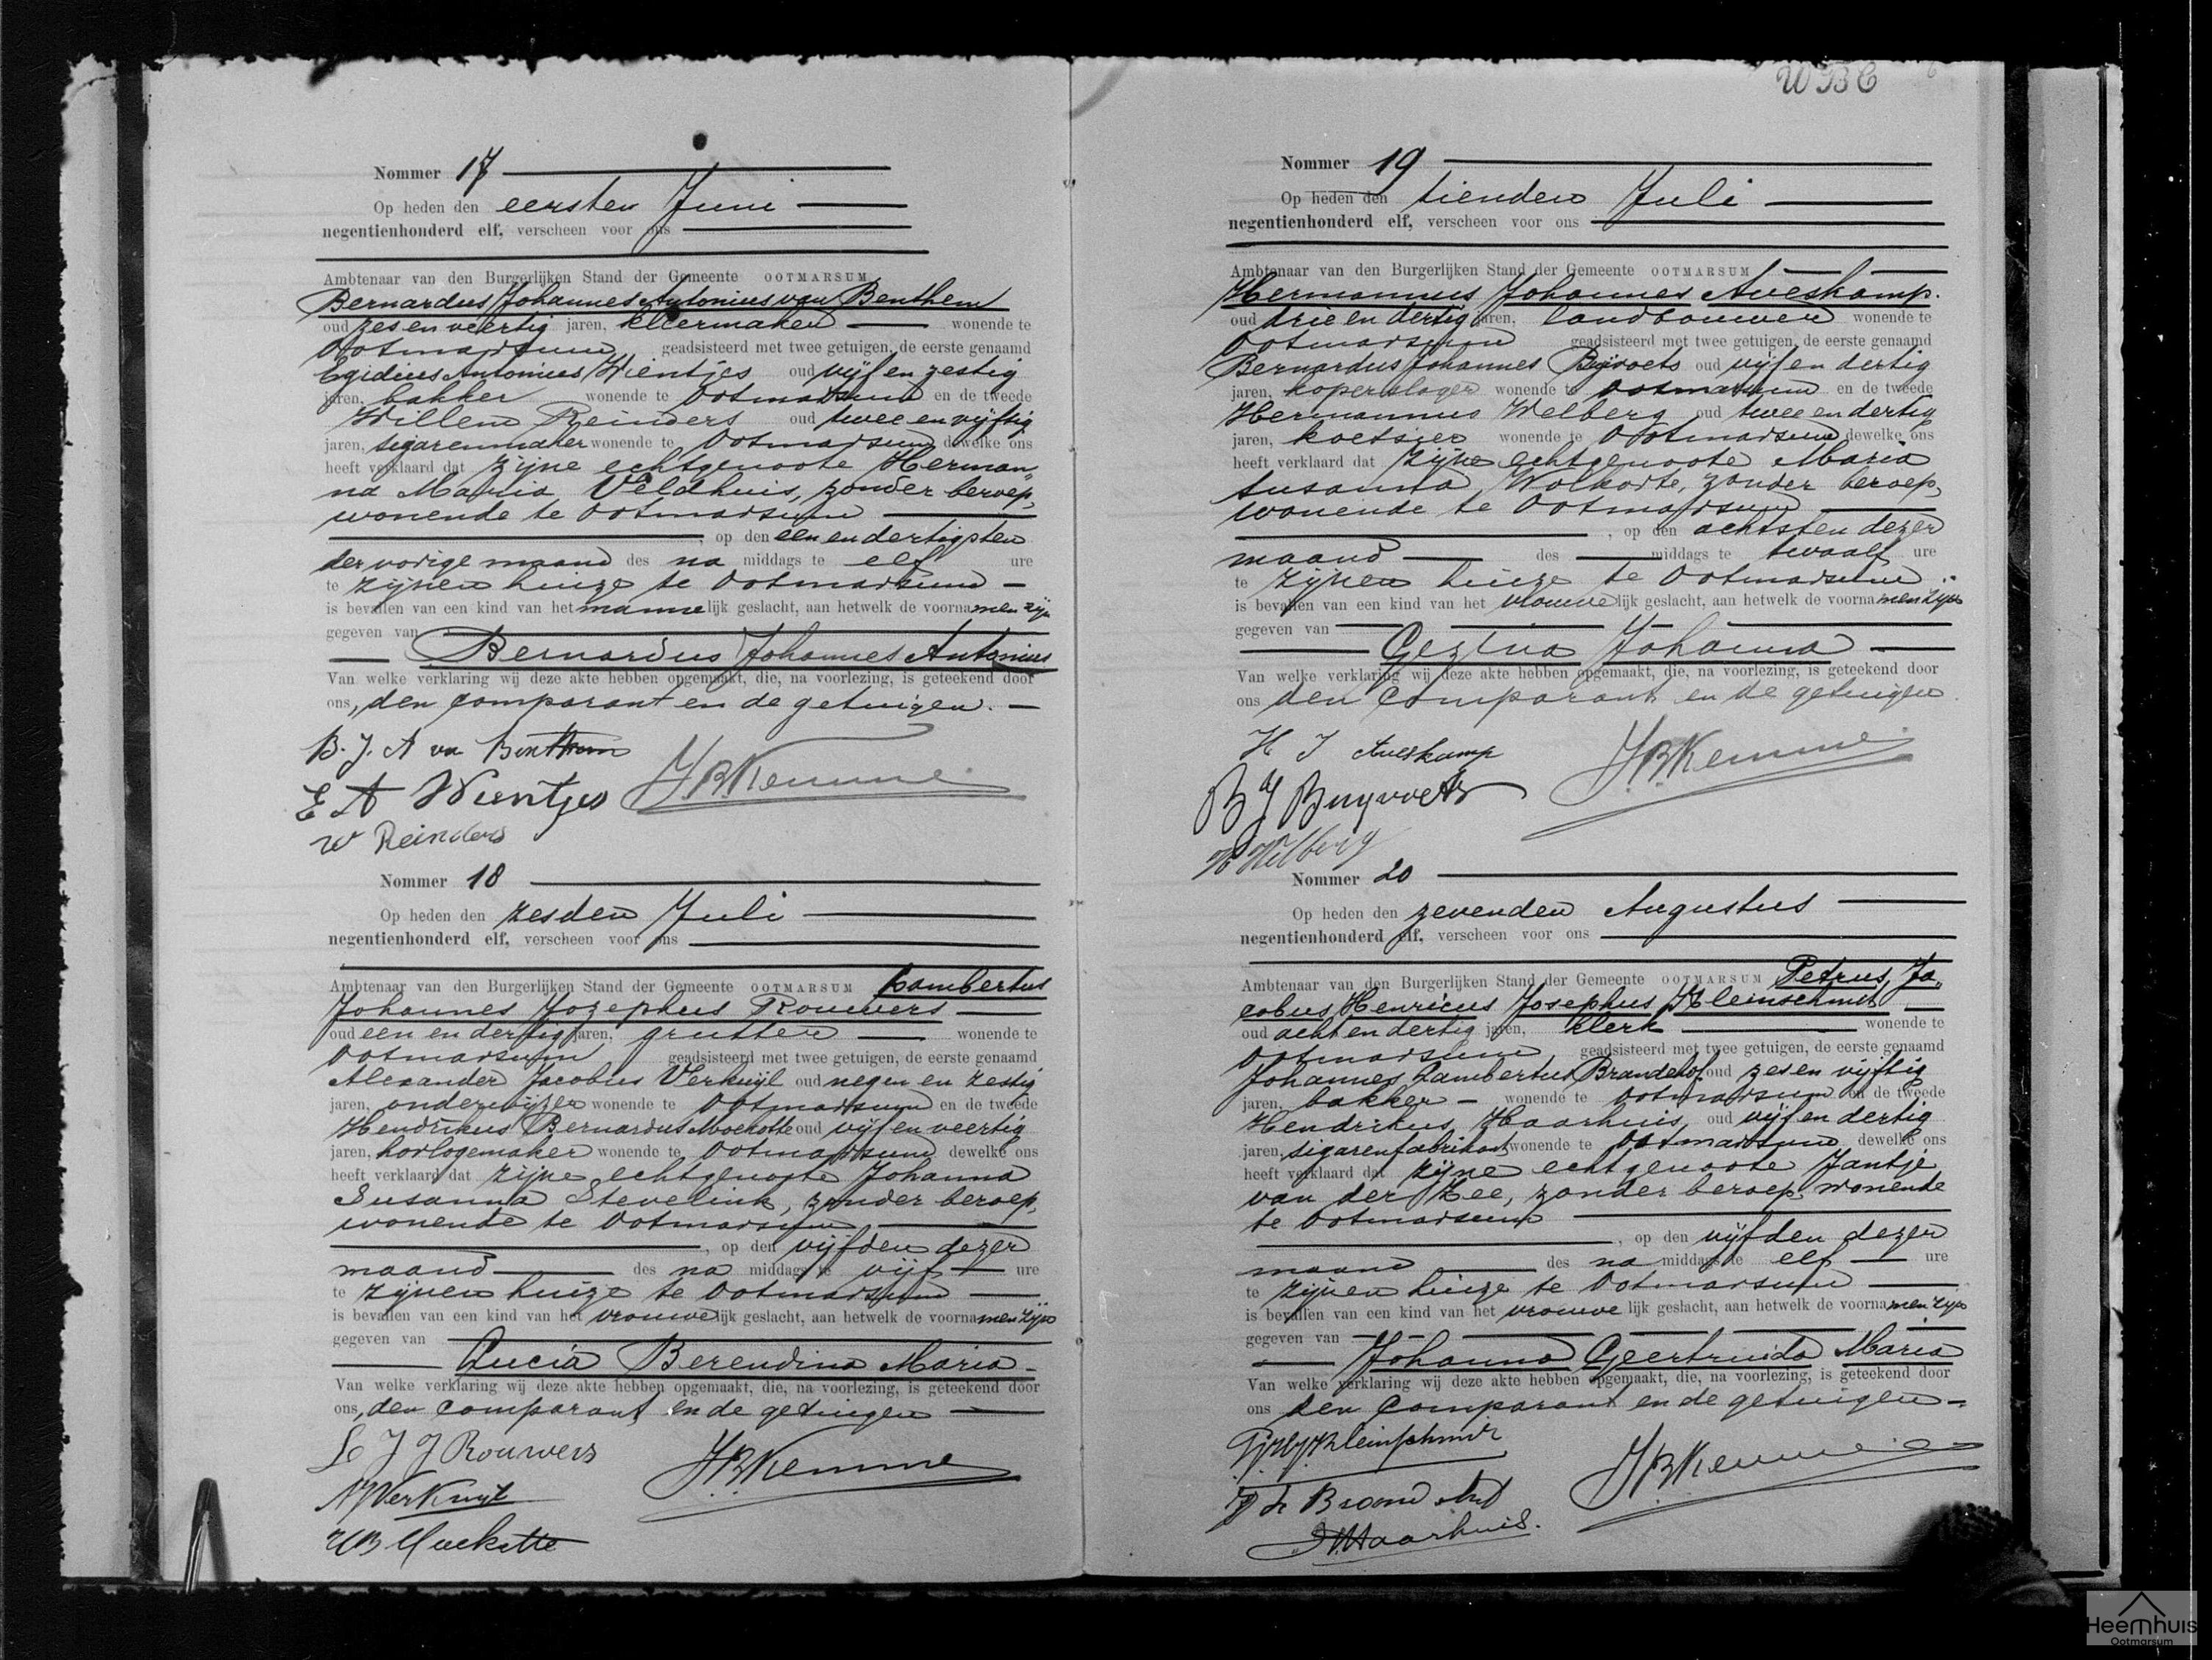 Nommer 17
Op heden den eersten Juni
negentienhonderd elf, verscheen voor ons
Ambtenaar van den Burgerlijken Stand der Gemeente OOTMARSUM
Bernardus Johannes Antonius van Benthem
oud zes en veertig jaren, kleermaker wonende te
Ootmarsum geadsisteerd met twee getuigen, de eerste genaamd
Egidius Antonius Wientjes oud vijf en zestig
jaren, bakker wonende te Ootmarsum en de tweede
Willem Reinders oud twee en vijftig
jaren, sigarenmaker wonende te Ootmarsum dewelke ons
heeft verklaard dat zijne echtgenoote Herman„
na Maria Veldhuis, zonder beroep,
wonende te Ootmarsum
, op den een en dertigsten
der vorige maand des na middags te elf ure
te zijnen huize te Ootmarsum
is bevallen van een kind van het mannelijk geslacht, aan hetwelk de voornamen zijn
gegeven van
Bernardus Johannes Antonius
Van welke verklaring wij deze akte hebben opgemaakt, die, na voorlezing, is geteekend door
ons, den comparant en de getuigen.
B. J. A van Benthem
J.B. Kemme
E A Wientjes
W Reinders
Nommer 18
Op heden den zesden Juli
negentienhonderd elf, verscheen voor ons
Ambtenaar van den Burgerlijken Stand der Gemeente OOTMARSUM Lambertus
Johannes Jozephus Rouwers
oud een en dertig jaren, grutter wonende te
Ootmarsum geadsisteerd met twee getuigen, de eerste genaamd
Alexander Jacobus Verkuijl oud negen en zestig
jaren, onderwijzer wonende te Ootmarsum en de tweede
Hendrikus Bernardus Moekotte oud vijf en veertig
jaren, horlogemaker wonende te Ootmarsum dewelke ons
heeft verklaard dat zijne echtgenoote Johanna
Susanna Stevelink, zonder beroep,
wonende te Ootmarsum
, op den vijfden dezer
maand des na middags te vijf ure
te zijnen huize te Ootmarsum
is bevallen van een kind van het vrouwelijk geslacht, aan hetwelk de voornamen zijn
gegeven van
Lucia Berendina Maria
Van welke verklaring wij deze akte hebben opgemaakt, die, na voorlezing, is geteekend door
ons, den comparant en de getuigen
L J J Rouwers
J.B. Kemme
AJ Verkuijl
HB Moekotte
WBC
Nommer 19
Op heden den tienden Juli
negentienhonderd elf, verscheen voor ons
Ambtenaar van den Burgerlijken Stand der Gemeente OOTMARSUM
Hermannus Johannes Aveskamp.
oud drie en dertig jaren, landbouwer wonende te
Ootmarsum geadsisteerd met twee getuigen, de eerste genaamd
Bernardus Johannes Buijvoets oud vijf en dertig
jaren, koperslager wonende te Ootmarsum en de tweede
Hermannus Welberg oud twee en dertig
jaren, koetsier wonende te Ootmarsum dewelke ons
heeft verklaard dat zijne echtgenoote Maria
Susanna Wolkotte, zonder beroep,
wonende te Ootmarsum
, op den achtsten dezer
maand des middags te twaalf ure
te zijnen huize te Ootmarsum
is bevallen van een kind van het vrouwelijk geslacht, aan hetwelk de voornamen zijn
gegeven van
Gezina Johanna
Van welke verklaring wij deze akte hebben opgemaakt, die, na voorlezing, is geteekend door
ons den comparant en de getuigen
H J Aveskamp
J.B. Kemme
B J Buyvoets
H Welberg
Nommer 20
Op heden den zevenden Augustus
negentienhonderd elf, verscheen voor ons
Ambtenaar van den Burgerlijken Stand der Gemeente OOTMARSUM Petrus Ja„
cobus Henricus Josephus Kleinschmit
oud acht en dertig jaren, klerk wonende te
Ootmarsum geadsisteerd met twee getuigen, de eerste genaamd
Johannes Lambertus Brandehof oud zes en vijftig
jaren, bakker wonende te Ootmarsum en de tweede
Hendrikus Haarhuis oud vijf en dertig
jaren, sigarenfabrikant wonende te Ootmarsum dewelke ons
heeft verklaard dat zijne echtgenoote Jantje
van der Zee, zonder beroep, wonende
te Ootmarsum
, op den vijfden dezer
maand des na middags te elf ure
te zijnen huize te Ootmarsum
is bevallen van een kind van het vrouwelijk geslacht, aan hetwelk de voornamen zijn
gegeven van
Johanna Geertruida Maria
Van welke verklaring wij deze akte hebben opgemaakt, die, na voorlezing, is geteekend door
ons den comparant en de getuigen
PJHJ Kleinschmit
J.B. Kemme
Haarhuis.
Heemhuis
Ootmarsum